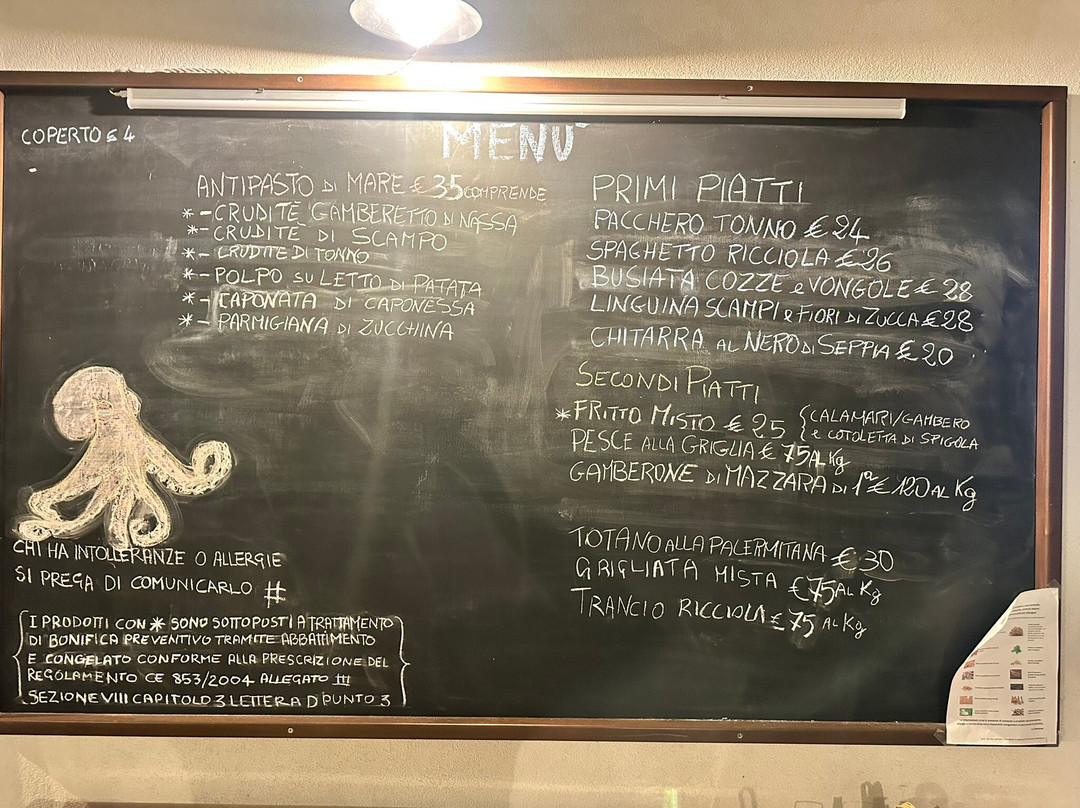 COPERTO € 4
MENU'
ANTIPASTO DI MARE € 35 COMPRENDE
* - CRUDITÈ GAMBERETTO DI NASSA
* - CRUDITÈ DI SCAMPO
* - CRUDITÈ DI TONNO
* - POLPO SU LETTO DI PATATA
* - CAPONATA DI CAPONESSA
* - PARMIGIANA DI ZUCCHINA
PRIMI PIATTI
PACCHERO TONNO € 24
SPAGHETTO RICCIOLA € 26
BUSIATA COZZE e VONGOLE € 28
LINGUINA SCAMPI e FIORI DI ZUCCA € 28
CHITARRA AL NERO DI SEPPIA € 20
SECONDI PIATTI
* FRITTO MISTO € 25 { CALAMARI/GAMBERO
e COTOLETTA DI SPIGOLA
PESCE ALLA GRIGLIA € 75 AL Kg
GAMBERONE DI MAZZARA DI 1ª € 120 AL Kg
TOTANO ALLA PALERMITANA € 30
GRIGLIATA MISTA € 75 AL Kg
TRANCIO RICCIOLA € 75 AL Kg
CHI HA INTOLLERANZE O ALLERGIE
SI PREGA DI COMUNICARLO #
I PRODOTTI CON * SONO SOTTOPOSTI A TRATTAMENTO
DI BONIFICA PREVENTIVO TRAMITE ABBATTIMENTO
E CONGELATO CONFORME ALLA PRESCRIZIONE DEL
REGOLAMENTO CE 853/2004 ALLEGATO III
SEZIONE VIII CAPITOLO 3 LETTERA D PUNTO 3